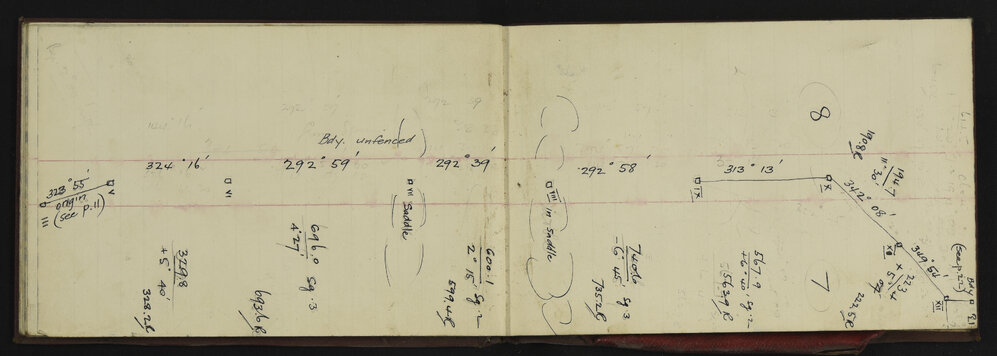 8
Bdy. unfenced
323° 55′
324° 16′
292° 59′
292° 39′
292° 58′
313° 13′
III
origin
(see p.11)
V
VI
VII Saddle
VIII in saddle
IX
X
190.8R
194.7
11° 30′
342° 08′
XI
349° 54′
(See p.22)
Bdy
XII
329.8
+5° 40′
328.2R
696.0 Sg.3
4° 27′
693.6R
600.1
2° 15′ Sg.2
599.4R
740.6
-6° 45′ Sg 3
735.2R
567.9
+6° 40′ Sg.2
563.9R
7
223
222.5R